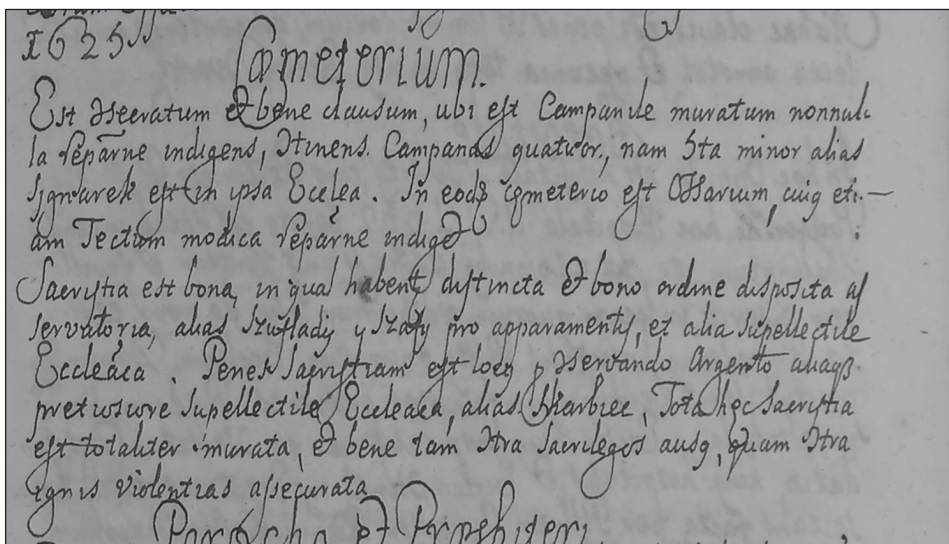 1625
Cœmeterium.
Est Asecratum et bene clausum, ubi est Campanile muratum nonnul-
la repãrne indigens, Atinens. Campanas quatuor, nam 5ta minor alias
Sygnarek est in ypsa Ecclea. In eodẽ cymeterio est Ossarium, cuig eti-
am Tectum modica repãrne indiget
Sacristia est bona, in qua habent distincta et bono ordine disposita as
servatoria, alias Szuflady y szafy pro apparamentis, et alia supellectile
Eccleãca. Penes Sacristiam est locq p Aservando Argento aliaqȝ
pretiosiore supellectile Eccleaca, alias Skarbiec, Tota hęc Sacristia
est totaliter murata, et bene tam Atra sacrilegos ausq, quam Atra
ignis violentias assecurata
Parocho et Pręsbiteri